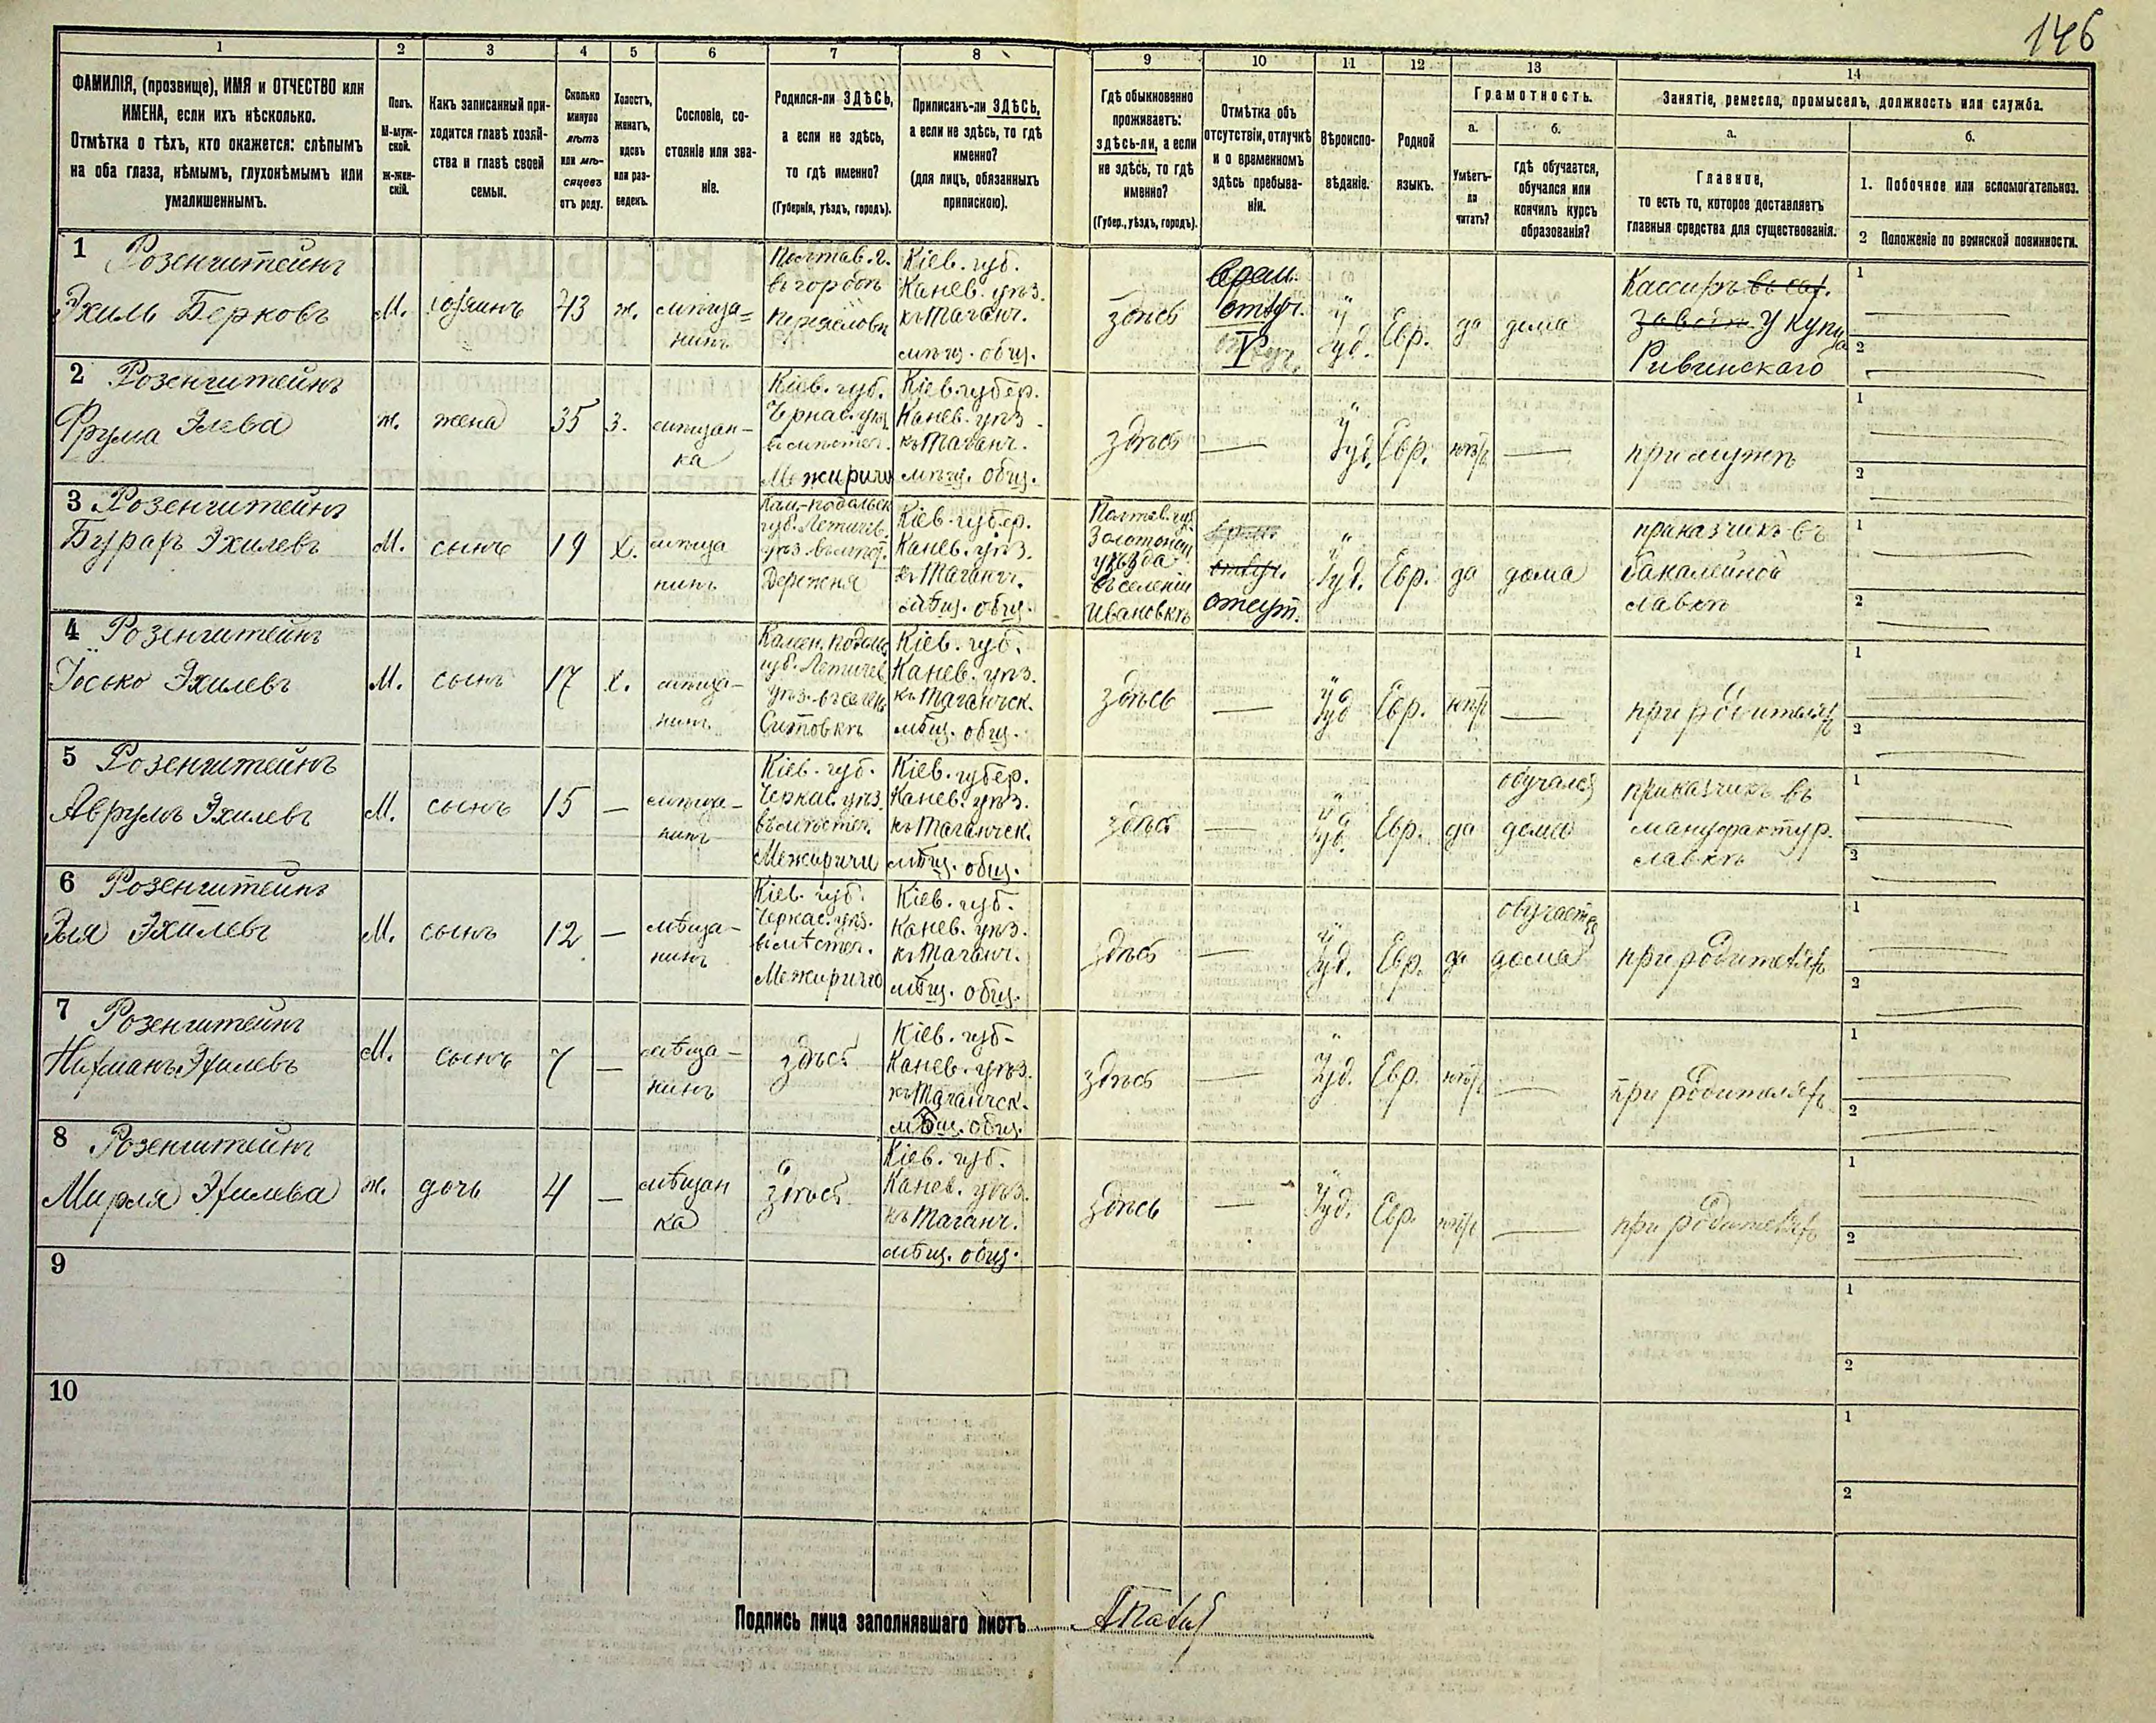 146
1 2 3 4 5 6 7 8 9 10 11 12 13 14
ФАМИЛІЯ, (прозвище), ИМЯ и ОТЧЕСТВО или
ИМЕНА, если ихъ нѣсколько.
Отмѣтка о тѣхъ, кто окажется: слѣпымъ
на оба глаза, нѣмымъ, глухонѣмымъ или
умалишеннымъ.
Полъ.
М-муж-
ской.
ж-жен-
скій.
Какъ записанный при-
ходится главѣ хозяй-
ства и главѣ своей
семьи.
Сколько
минуло
лѣтъ
или мѣ-
сяцевъ
отъ роду.
Холостъ,
женатъ,
вдовъ
или раз-
веденъ.
Сословіе, со-
стояніе или зва-
ніе.
Родился-ли ЗДѢСЬ,
а если не здѣсь,
то гдѣ именно?
(Губернія, уѣздъ, городъ).
Приписанъ-ли ЗДѢСЬ,
а если не здѣсь, то гдѣ
именно?
(для лицъ, обязанныхъ
припискою).
Гдѣ обыкновенно
проживаетъ:
здѣсь-ли, а если
не здѣсь, то гдѣ
именно?
(Губер., уѣздъ, городъ).
Отмѣтка объ
отсутствіи, отлучкѣ
и о временномъ
здѣсь пребыва-
ніи.
Вѣроиспо-
вѣданіе.
Родной
языкъ.
Грамотность.
а.
Умѣетъ-
ли
читать?
б.
гдѣ обучается,
обучался или
кончилъ курсъ
образованія?
Занятіе, ремесло, промыселъ, должность или служба.
а.
Главное,
то есть то, которое доставляетъ
главныя средства для существованія.
б.
1. Побочное или вспомогательноз.
2 Положеніе по воинской повинности.
1 Розенштейнъ
Эхиль Берковъ
М.
хозяинъ
43
ж.
мѣща=
нинъ
Полтав. г.
въ городѣ
Переяслове
Кіев. губ.
Канев. уѣз.
къ Таганч.
мѣщ. общ.
здѣсь
врем.
отлуч.
Іуд.
Евр.
да
дома
Кассиръ въ сах.
завод. у купца
Ривинскаго
1
2
2 Розенштейнъ
Фрума Элева
ж.
жена
35
з.
мѣщан-
ка
Кіев. губ.
Черкас. уѣз.
въ мѣстеч.
Межиричи
Кіев. губер.
Канев. уѣз.
къ Таганч.
мѣщ. общ.
здѣсь
—
Іуд.
Евр.
нѣтъ
—
при мужѣ
1
2
3 Розенштейнъ
Эхилевъ
М.
сынъ
19
х.
мѣща
нинъ
Кам.-подольск
губ. Летичев.
Деражня
Кіев. губер.
Канев. уѣз.
къ Таганч.
мѣщ. общ.
Полтав. губ.
Золотонош
уѣзда
въ селеніи
Ивановкѣ
врем.
отлуч.
отсут.
Іуд.
Евр.
да
дома
приказчикъ въ
бакалейной
лавкѣ
1
2
4 Розенштейнъ
Іосько Эхилевъ
М.
сынъ
17
х.
мѣща-
нинъ
Камен. Подольс.
губ. Летичев.
Кіев. губ.
Канев. уѣз.
къ Таганчск.
мѣщ. общ.
здѣсь
—
Іуд
Евр.
нѣтъ
—
при родителяхъ
1
2
5 Розенштейнъ
Аврумъ Эхилевъ
М.
сынъ
15
—
мѣща-
нинъ
Кіев. губ.
Черкас. уѣз.
въ мѣстеч.
Межиричи
Кіев. губер.
Канев. уѣз.
къ Таганчск.
мѣщ. общ.
здѣсь
—
Іуд.
Евр.
да
обучался
дома
приказчикъ въ
мануфактур.
лавкѣ
1
2
6 Розенштейнъ
Эля Эхилевъ
М.
сынъ
12
—
мѣща-
нинъ
Кіев. губ.
Черкас. уѣз.
въ мѣстеч.
Межиричю
Кіев. губ.
Канев. уѣз.
къ Таганч.
мѣщ. общ.
здѣсь
—
Іуд.
Евр.
да
обучается
дома
при родителяхъ
1
2
7 Розенштейнъ
Нахманъ Эхилевъ
М.
сынъ
7
—
мѣща-
нинъ
здѣсь
Кіев. губ-
Канев. уѣз.
къ Таганчск.
мѣщ. общ.
здѣсь
—
Іуд.
Евр.
нѣтъ
—
при родителяхъ
1
2
8 Розенштейнъ
Мирля Эхилева
ж.
дочь
4
—
мѣщан
ка
здѣсь
Кіев. губ.
Канев. уѣз.
къ Таганч.
мѣщ. общ.
здѣсь
—
Іуд.
Евр.
нѣтъ
—
при родителяхъ
1
2
9
1
2
10
1
2
Подпись лица заполнявшаго листъ